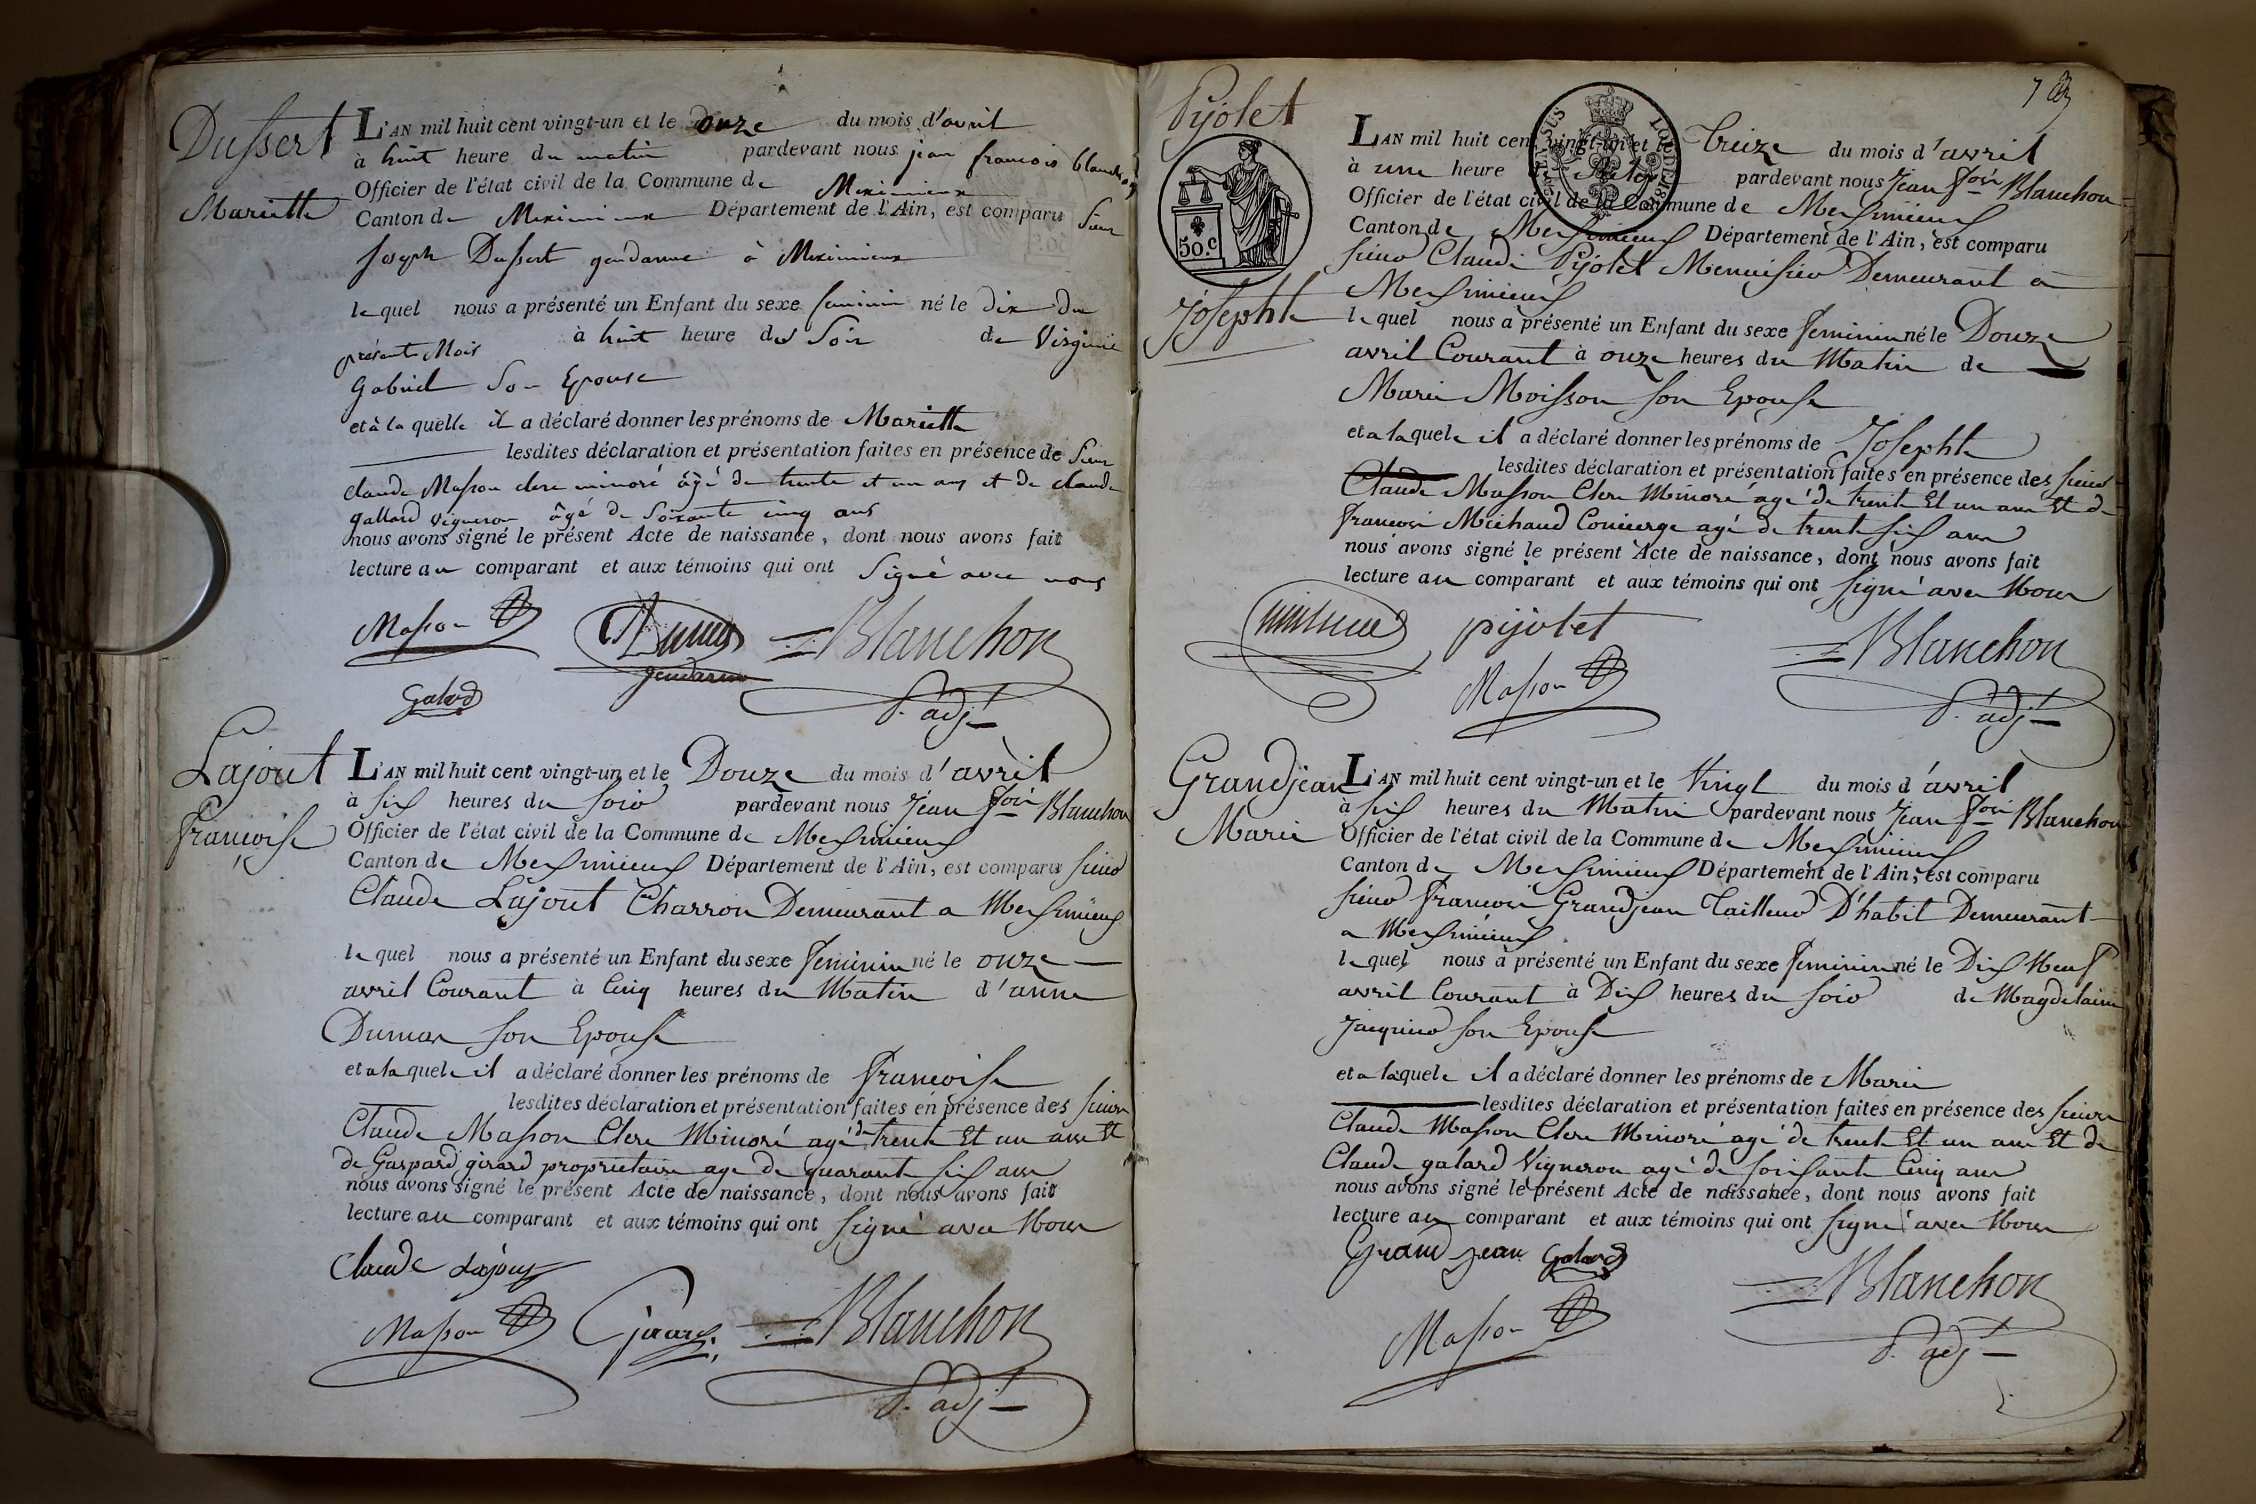 Dussert
Mariette
L'AN mil huit cent vingt-un et le onze du mois d'avril
à huit heure du matin pardevant nous jean francois blanchon
Officier de l'état civil de la Commune de Meximieux
Canton de Meximieux Département de l'Ain, est comparu Sieur
joseph Dussert gendarme à Meximieux
lequel nous a présenté un Enfant du sexe feminin né le dix du
présent Mois à huit heure du Soir de Virginie
Gabriel Son Epouse
et à laquelle il a déclaré donner les prénoms de Mariette
lesdites déclaration et présentation faites en présence de Sieur
claude Masson clerc minoré âgé de trente et un ans et de claude
gallard vigneron âgé de Soixante cinq ans
nous avons signé le présent Acte de naissance, dont nous avons fait
lecture au comparant et aux témoins qui ont Signé avec nous
Masson
gendarme
Blanchon
Galard
adjt
Lajout
françoise
L'AN mil huit cent vingt-un et le Douze du mois d'avril
à six heures du soir pardevant nous Jean fois Blanchon
Officier de l'état civil de la Commune de Meximieux
Canton de Meximieux Département de l'Ain, est comparu sieur
Claude Lajout Charron Demeurant a Meximieux
lequel nous a présenté un Enfant du sexe feminin né le onze
avril Courant à Cinq heures du Matin d'anne
Dumas son Epouse
et a laquele il a déclaré donner les prénoms de francoise
lesdites déclaration et présentation faites en présence des sieurs
Claude Masson Clerc Minoré agé de trente Et un ans Et
de Gaspard girard proprietaire age de quarante six ans
nous avons signé le présent Acte de naissance, dont nous avons fait
lecture au comparant et aux témoins qui ont signé avec Nous
Claude Lajout
Masson
Girard
Blanchon
adjt
Pijolet
Josephte
50.c
L'AN mil huit cent vingt-un et le Treize du mois d'avril
à une heure pardevant nous Jean fois Blanchon
Officier de l'état civil de la Commune de Meximieux
Canton de Meximieux Département de l'Ain, est comparu
sieur Claude Pijolet Menuisier Demeurant a
Meximieux
lequel nous a présenté un Enfant du sexe feminin né le Douze
avril Courant à onze heures du Matin de
Marie Moisson son Epouse
et a laquele il a déclaré donner les prénoms de Josephte
lesdites déclaration et présentation faites en présence des sieurs
Claude Masson Clerc Minoré agé de trente Et un ans Et de
francois Michaud Concierge agé de trente six ans
nous avons signé le présent Acte de naissance, dont nous avons fait
lecture au comparant et aux témoins qui ont signé avec Nous
pijolet
Blanchon
Masson
adjt
Grandjean
Marie
L'AN mil huit cent vingt-un et le Vingt du mois d'avril
à six heures du Matin pardevant nous Jean fois Blanchon
Officier de l'état civil de la Commune de Meximieux
Canton de Meximieux Département de l'Ain, est comparu
sieur francois Grandjean Tailleur D'habit Demeurant
a Meximieux
lequel nous a présenté un Enfant du sexe feminin né le Dix Neuf
avril Courant à Dix heures du soir de Magdelaine
Jacquier son Epouse
et a laquele il a déclaré donner les prénoms de Marie
lesdites déclaration et présentation faites en présence des sieurs
Claude Masson Clerc Minoré agé de trente Et un ans Et de
Claude galard Vigneron agé de soixante Cinq ans
nous avons signé le présent Acte de naissance, dont nous avons fait
lecture au comparant et aux témoins qui ont signé avec Nous
Grand jean
Galard
Blanchon
Masson
adjt